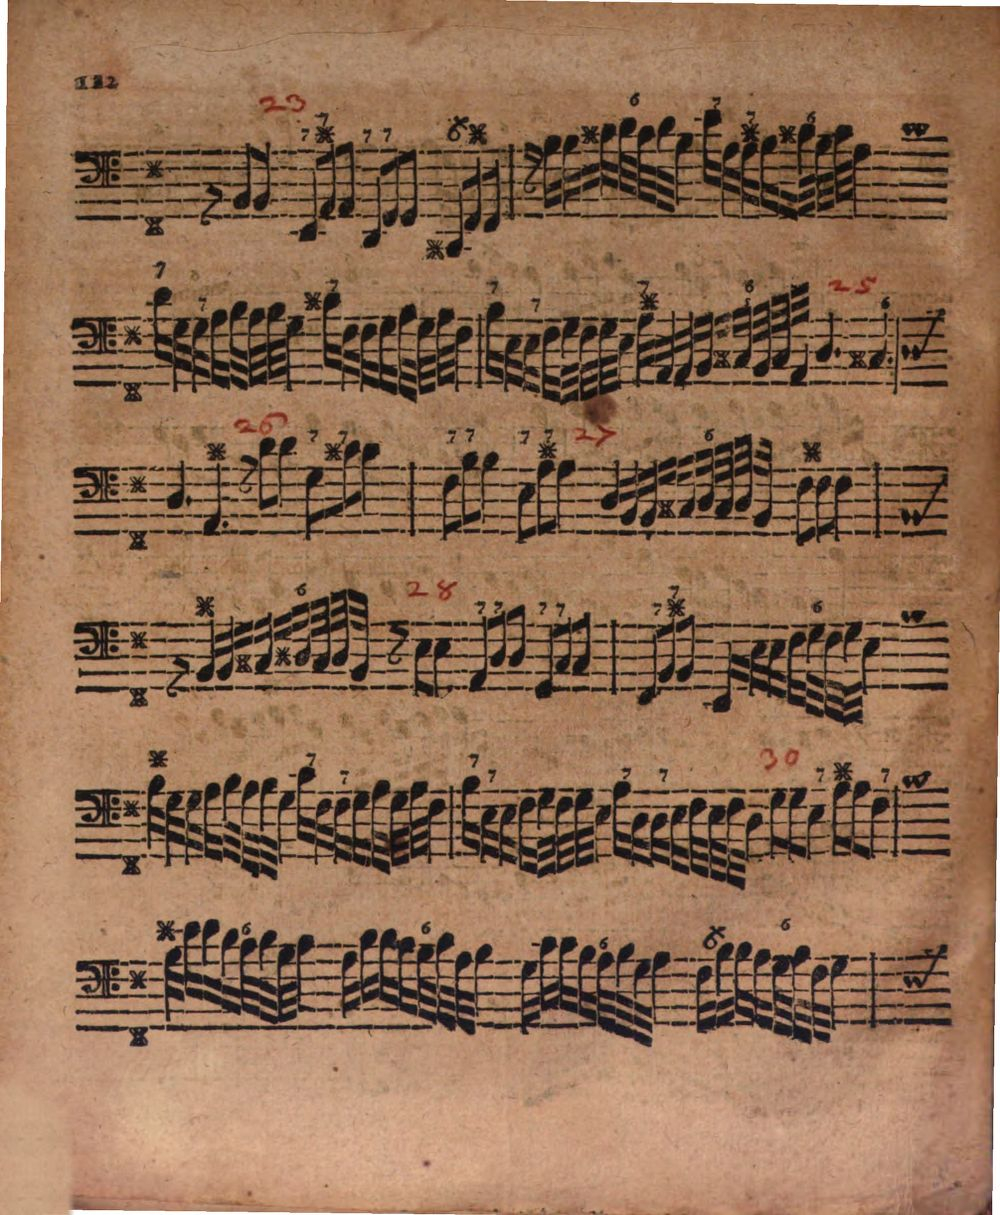 122
23
7 7 7 7 6 6 7 7 6
7 6 7 7 7 7 7 6 25 6
26 7 7 7 7 7 7 27 6
6 28 7 7 7 7 7 7 6
7 7 7 7 7 7 30 7 7
6 6 6 6 6